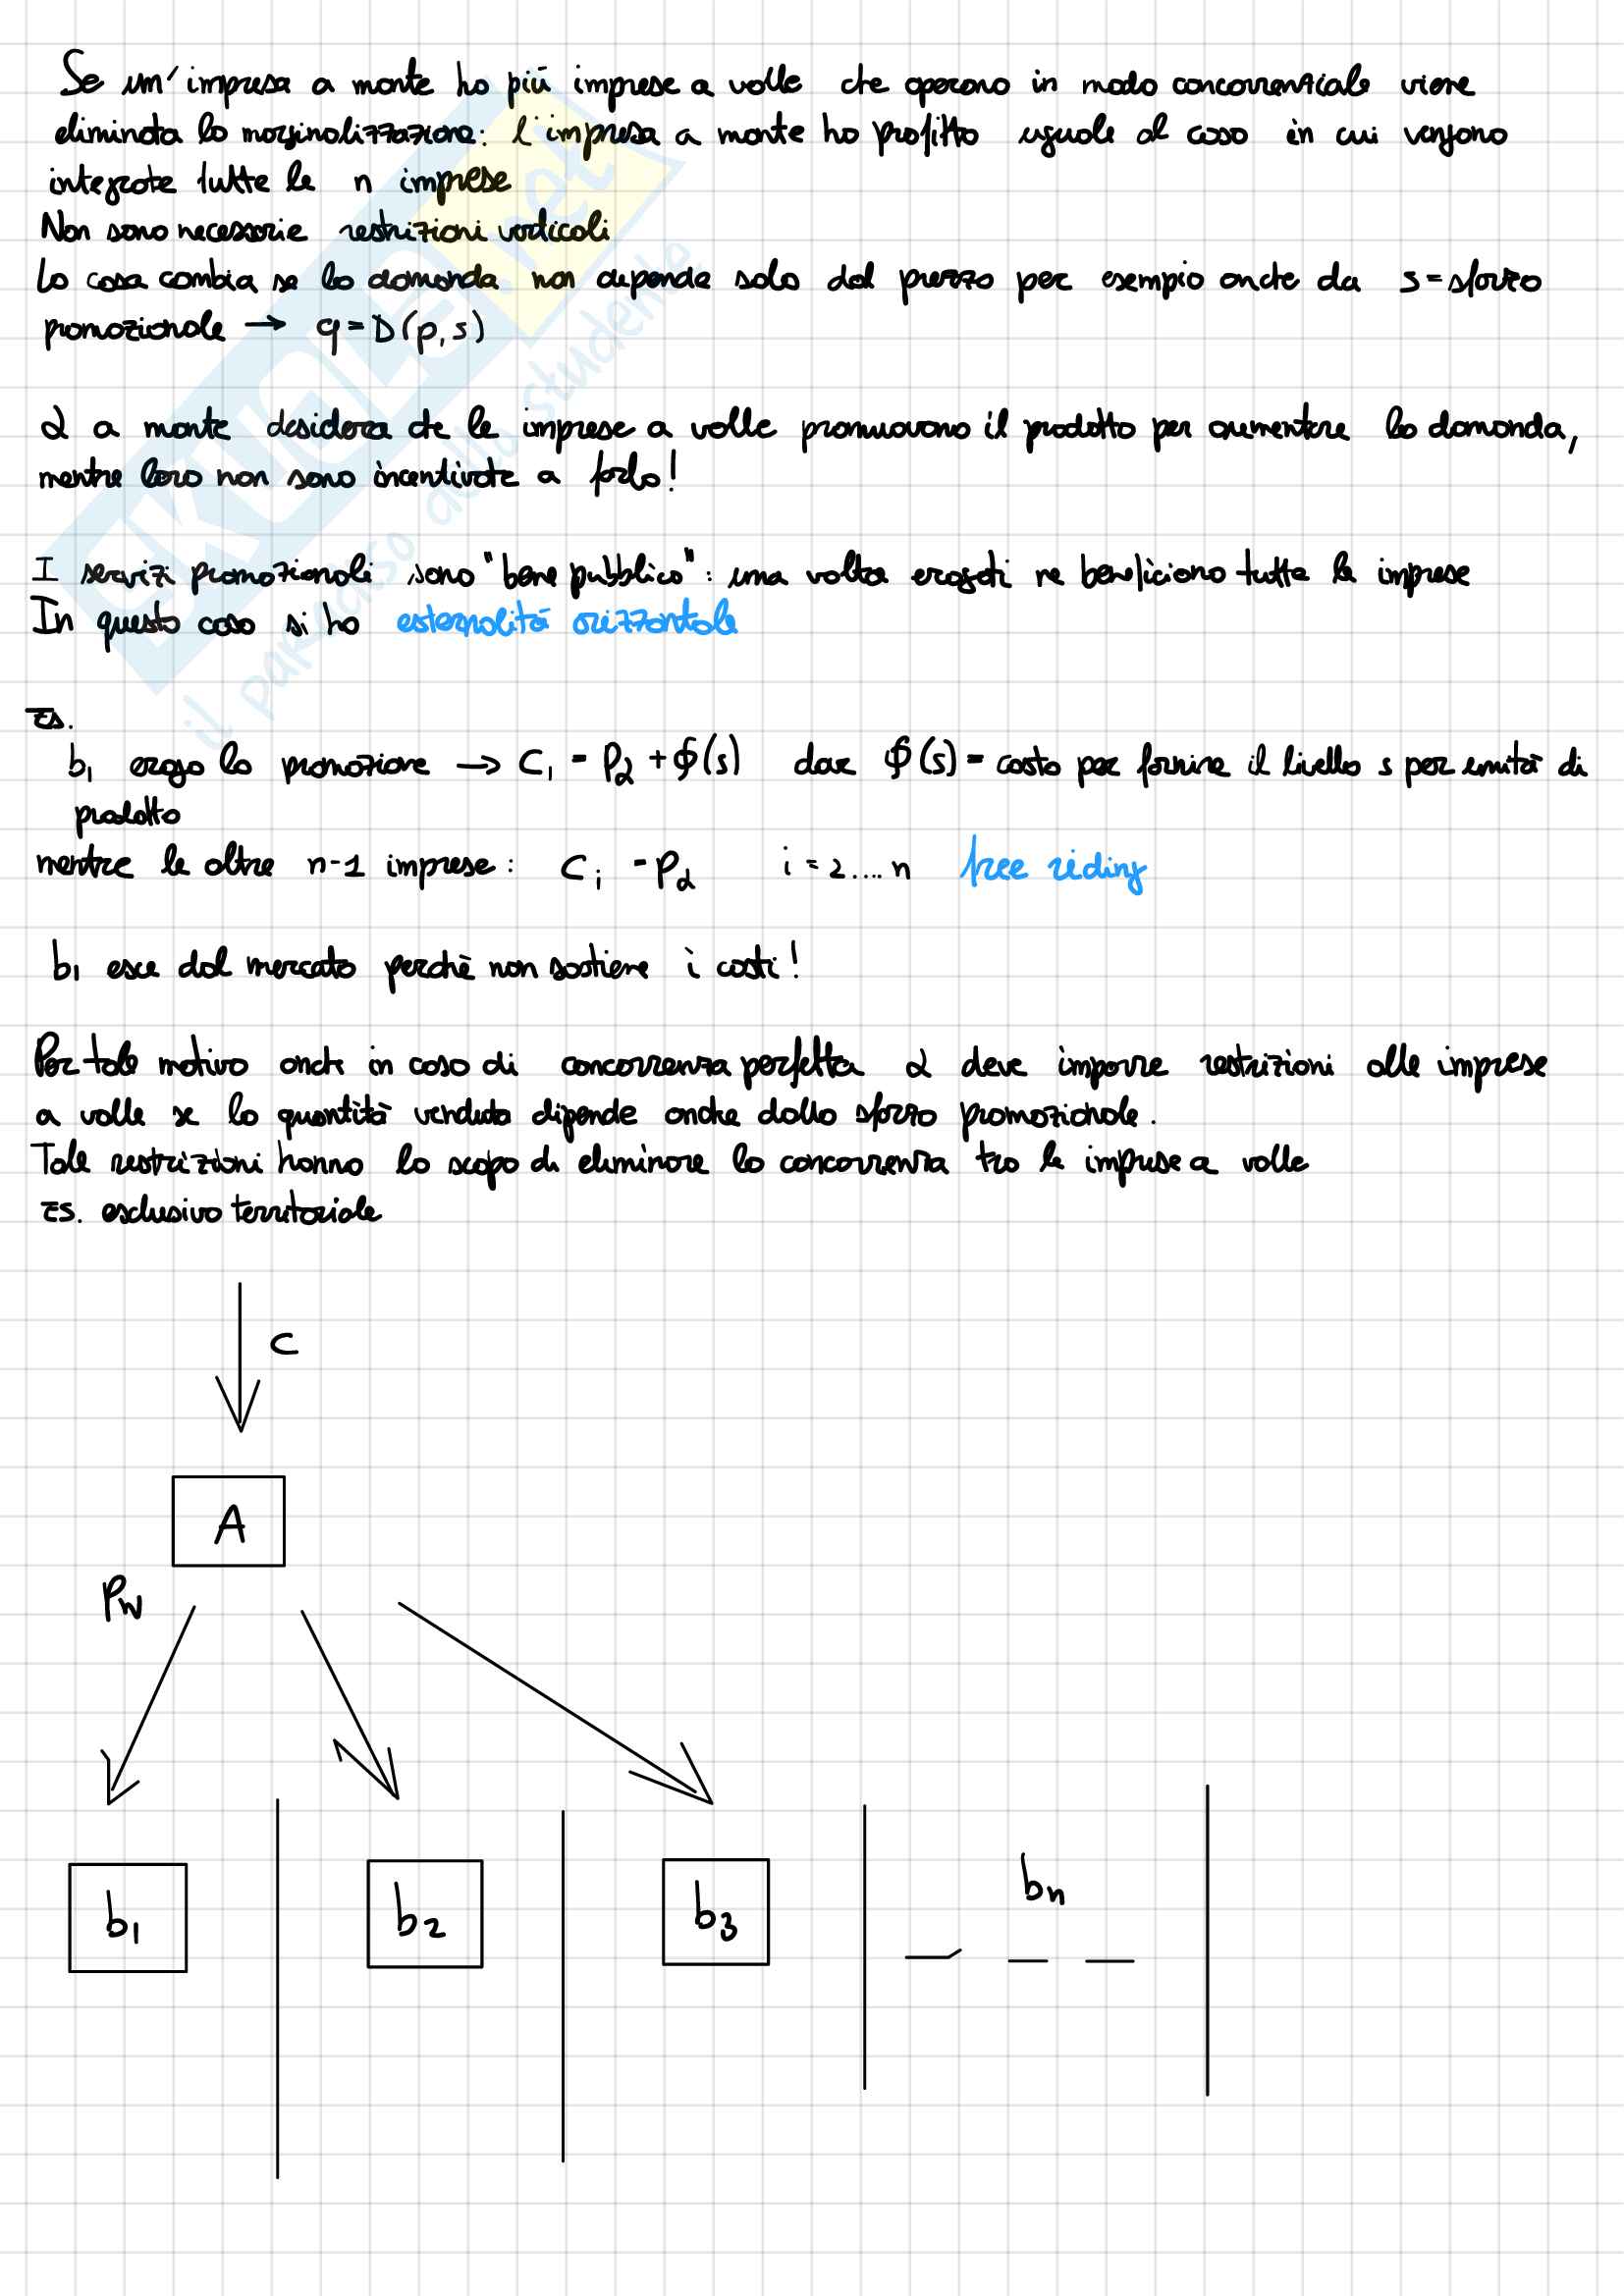 Se un' impresa a monte ha più imprese a valle che operano in modo concorrenziale viene
eliminata la marginalizzazione: l'impresa a monte ha profitto uguale al caso in cui vengono
integrate tutte le n imprese
Non sono necessarie restrizioni verticali
La cosa cambia se la domanda non dipende solo dal prezzo per esempio anche da s = sforzo
promozionale → q = D(p, s)
α a monte desidera che le imprese a valle promuovano il prodotto per aumentare la domanda,
mentre loro non sono incentivate a farlo!
I servizi promozionali sono "bene pubblico": una volta erogati ne beneficiano tutte le imprese
In questo caso si ha esternalità orizzontale
ES.
b1 eroga la promozione → C1 = Pα + Φ(s) dove Φ(s) = costo per fornire il livello s per unità di
prodotto
mentre le altre n-1 imprese: Ci = Pα i = 2.... n free riding
b1 esce dal mercato perchè non sostiene i costi!
Per tale motivo anche in caso di concorrenza perfetta α deve imporre restrizioni alle imprese
a valle se la quantità venduta dipende anche dallo sforzo promozionale.
Tale restrizioni hanno lo scopo di eliminare la concorrenza tra le imprese a valle
ES. esclusiva territoriale
C
A
Pw
b1 b2 b3 bn
SKUOLA.net
il paradiso dello studente